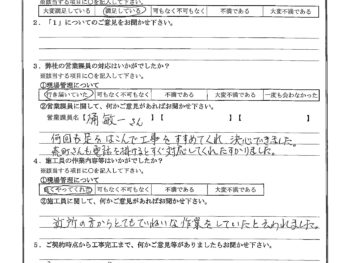 ※該当する項目に○を記入して下さい。
大変満足している 満足している 可もなく不可もなく 不満である 大変不満である
2．「１」についてのご意見をお聞かせ下さい。
3．弊社の営業課員の対応はいかがでしたか？
※該当する項目に○を記入して下さい。
①現場管理について
行き届いていた 可もなく不可もなく 不満である 大変不満である 一度も会わなかった
②営業課員に関して、何かご意見があればお聞かせ下さい。
営業課員名【 浦 敏一さん 】【 】【 】
何回も足をはこんで工事をすすめてくれ 決心できました。
さんも電話を掛けるとすぐ対応してくれ助かりました。
4．施工員の作業内容等はいかがでしたか？
※該当する項目に○を記入して下さい。
①現場管理について
良くやってくれた 可もなく不可もなく 不満である 大変不満である
②施工員に関して、何かご意見があればお聞かせ下さい。
近所の方からとてもていねいな作業をしていたと言われました。
5．ご契約時点から工事完工まで、何かご意見等がありましたらお聞かせ下さい。